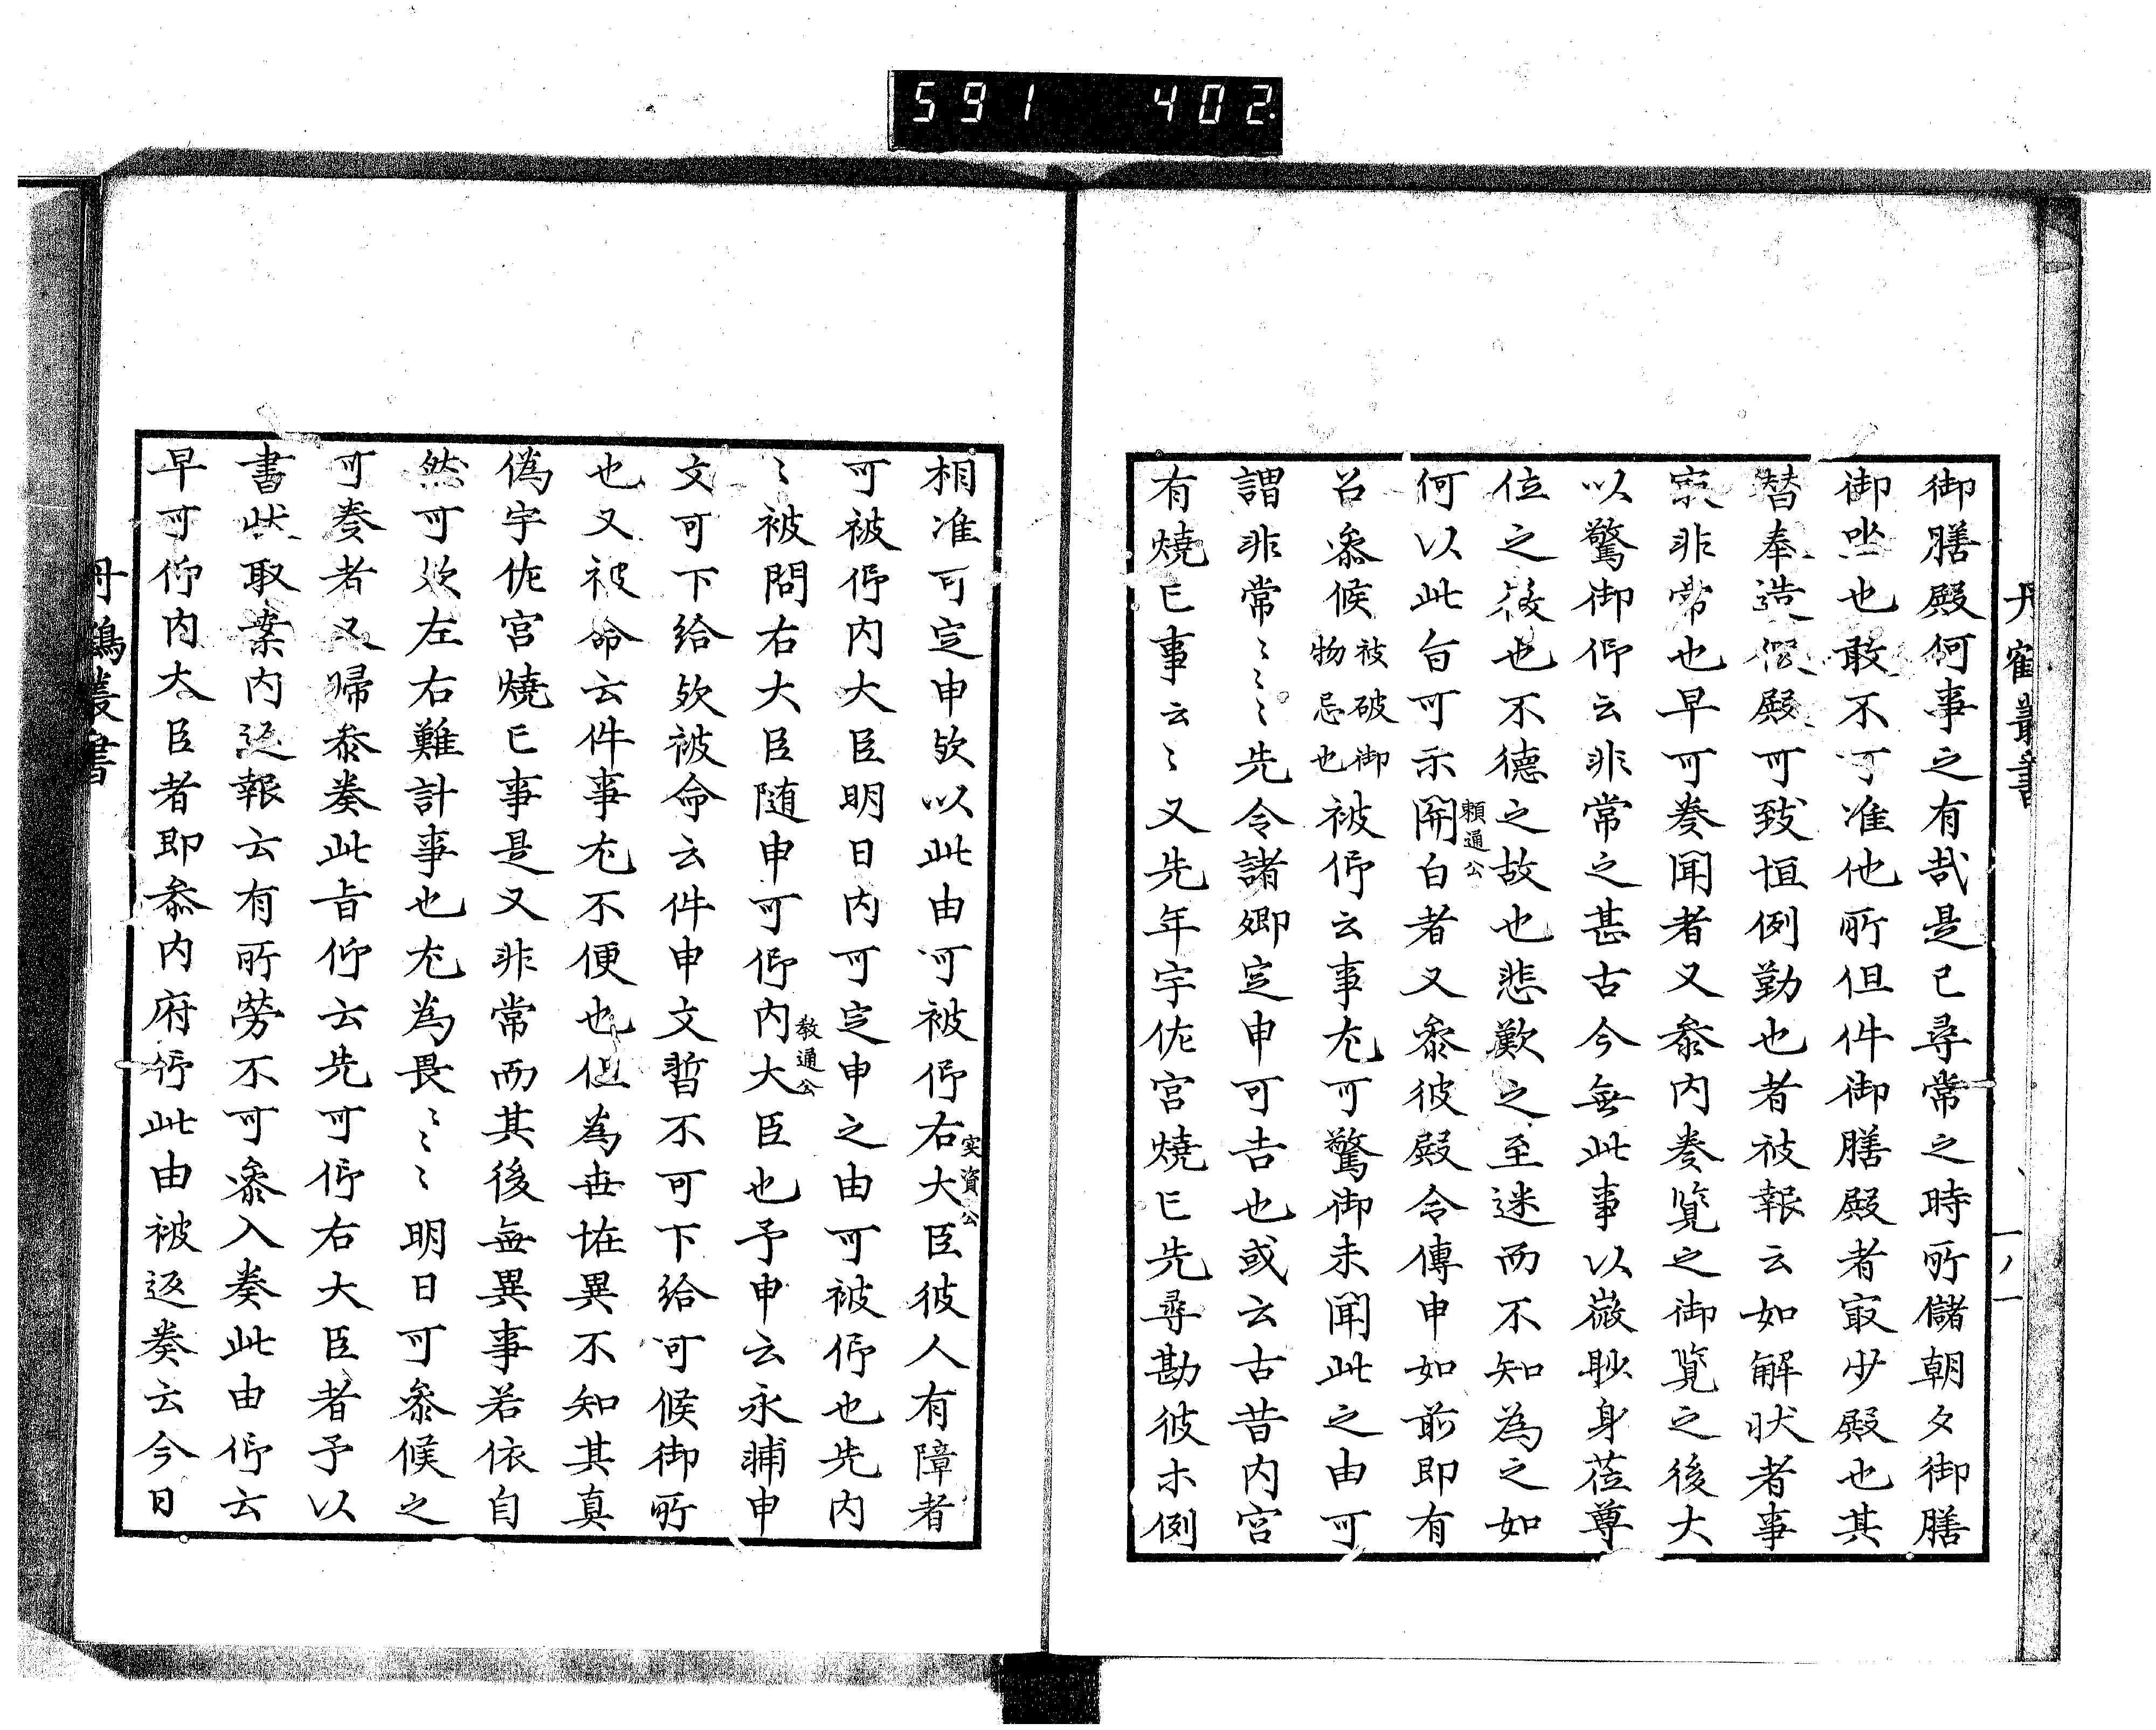 591 402
丹鶴叢書
御膳殿何事之有哉是已尋常之時所儲朝夕御膳
御坐也敢不可准他所但件御膳殿者寂少殿也其
替奉造假殿可致恒例勤也者被報云如解状者事
家非常也早可奏聞者又参内奏覧之御覧之後大
以驚御仰云非常之甚古今無此事以微眇身莅尊
位之後也不德之故也悲歎之至迷而不知為之如
何以此旨可示開白者又参彼殿令傳申如前即有
頼通公
召参候被破御物忌也被仰云事尤可驚御未聞此之由可
謂非常〻〻〻先令諸卿定申可吉也或云古昔内宮
有燒亡事云〻又先年宇佐宮燒亡先尋勘彼木例
相准可定申欤以此由可被仰右大臣彼人有障者
実資公
可被仰内大臣明日内可定申之由可被仰也先内
〻被問右大臣随申可仰内大臣也予申云永輔申
教通公
文可下給欤被命云件申文暫不可下給可候御所
也又被命云件事尤不便也但為世恠異不知其真
偽宇佐宮燒亡事是又非常而其後無異事若依自
然可欤左右難計事也尤為畏〻〻〻明日可参候之
可奏者又歸参奏此旨仰云先可仰右大臣者予以
書状取案内返報云有所勞不可参入奏此由仰云
早可仰内大臣者即参内府仰此由被返奏云今日
丹鶴叢書